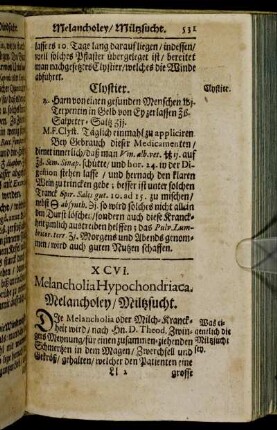 Melancholey / Miltzsucht. 531
lasse es 10. Tage lang darauf liegen / indessen /
weil solches Pflaster übergeleget ist / bereitet
man nachgesetztes Clystier / welches die Winde
abführet.
Clystier. Clystier.
Harn von einem gesunden Menschen
Terpentin in Geld von Eyzerlassen
Salpeter Saltz
M.F. Clyst. Täglich einmahl zu appliciren
Bey Gebrauch dieser Medicamenten /
dienet innerlich / daß man Vin. alb. vet. auf
Sem. Sinap. schütte / und hor. 24. in der Di-
gestion stehen lasse / und hernach den klaren
Wein zu trincken gebe; besser ist unter solchen
Tranck Spir. Salis gut. 10. ad 15. zu mischen /
absynth. so wird solches nicht allein
den Durst löschen / sondern auch diese Kranck-
heit zimlich austreiben helffen; das Pulv. Lum-
bricor. terr. Morgens und Abends genom-
men / wird auch guten Nutzen schaffen.
XCVI.
Melancholia Hypochondriaca.
Melancholey / Miltzsucht.
DIe Melancholia oder Milch-Kranck- Was ei-
heit wird / nach Hn. D. Theod. Zwin- gentlich die
gers Meynung / für einen zusammen-ziehenden Miltzsucht
Schmertzen in dem Magen / Zwerchfell und sey.
Gekröß / gehalten / welcher den Patienten eine
Ll 2 grosse